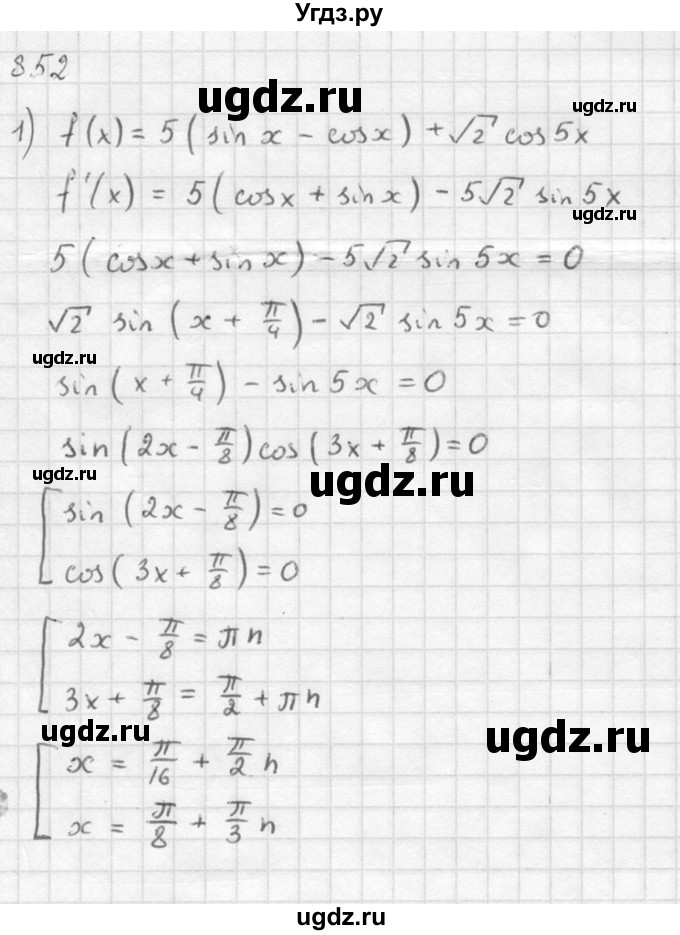 Угдз.ру
852
ugdz.ru
ugdz.ru
1) f(x) = 5(sin x - cos x) + √2 cos 5x
f'(x) = 5(cos x + sin x) - 5√2 sin 5x
ugdz.ru
5(cos x + sin x) - 5√2 sin 5x = 0
√2 sin(x + π/4) - √2 sin 5x = 0
ugdz.ru
sin(x + π/4) - sin 5x = 0
ugdz.ru
sin(2x - π/8) cos(3x + π/8) = 0
ugdz.ru
ugdz.ru
[ sin(2x - π/8) = 0
cos(3x + π/8) = 0
[ 2x - π/8 = πn
3x + π/8 = π/2 + πn
ugdz.ru
ugdz.ru
[ x = π/16 + π/2 n
x = π/8 + π/3 n
ugdz.ru